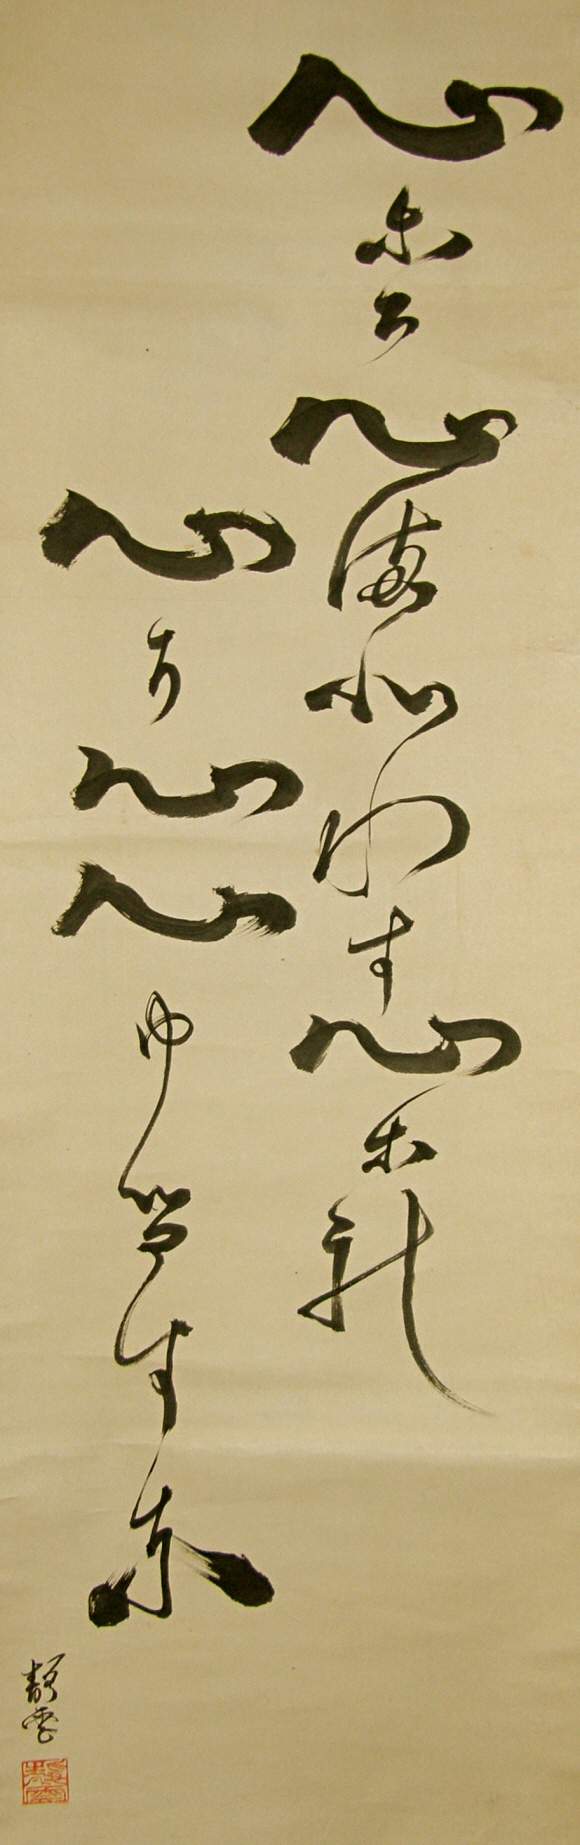 心こそ心まよわす心なれ
心に心心ゆるすな
静雲